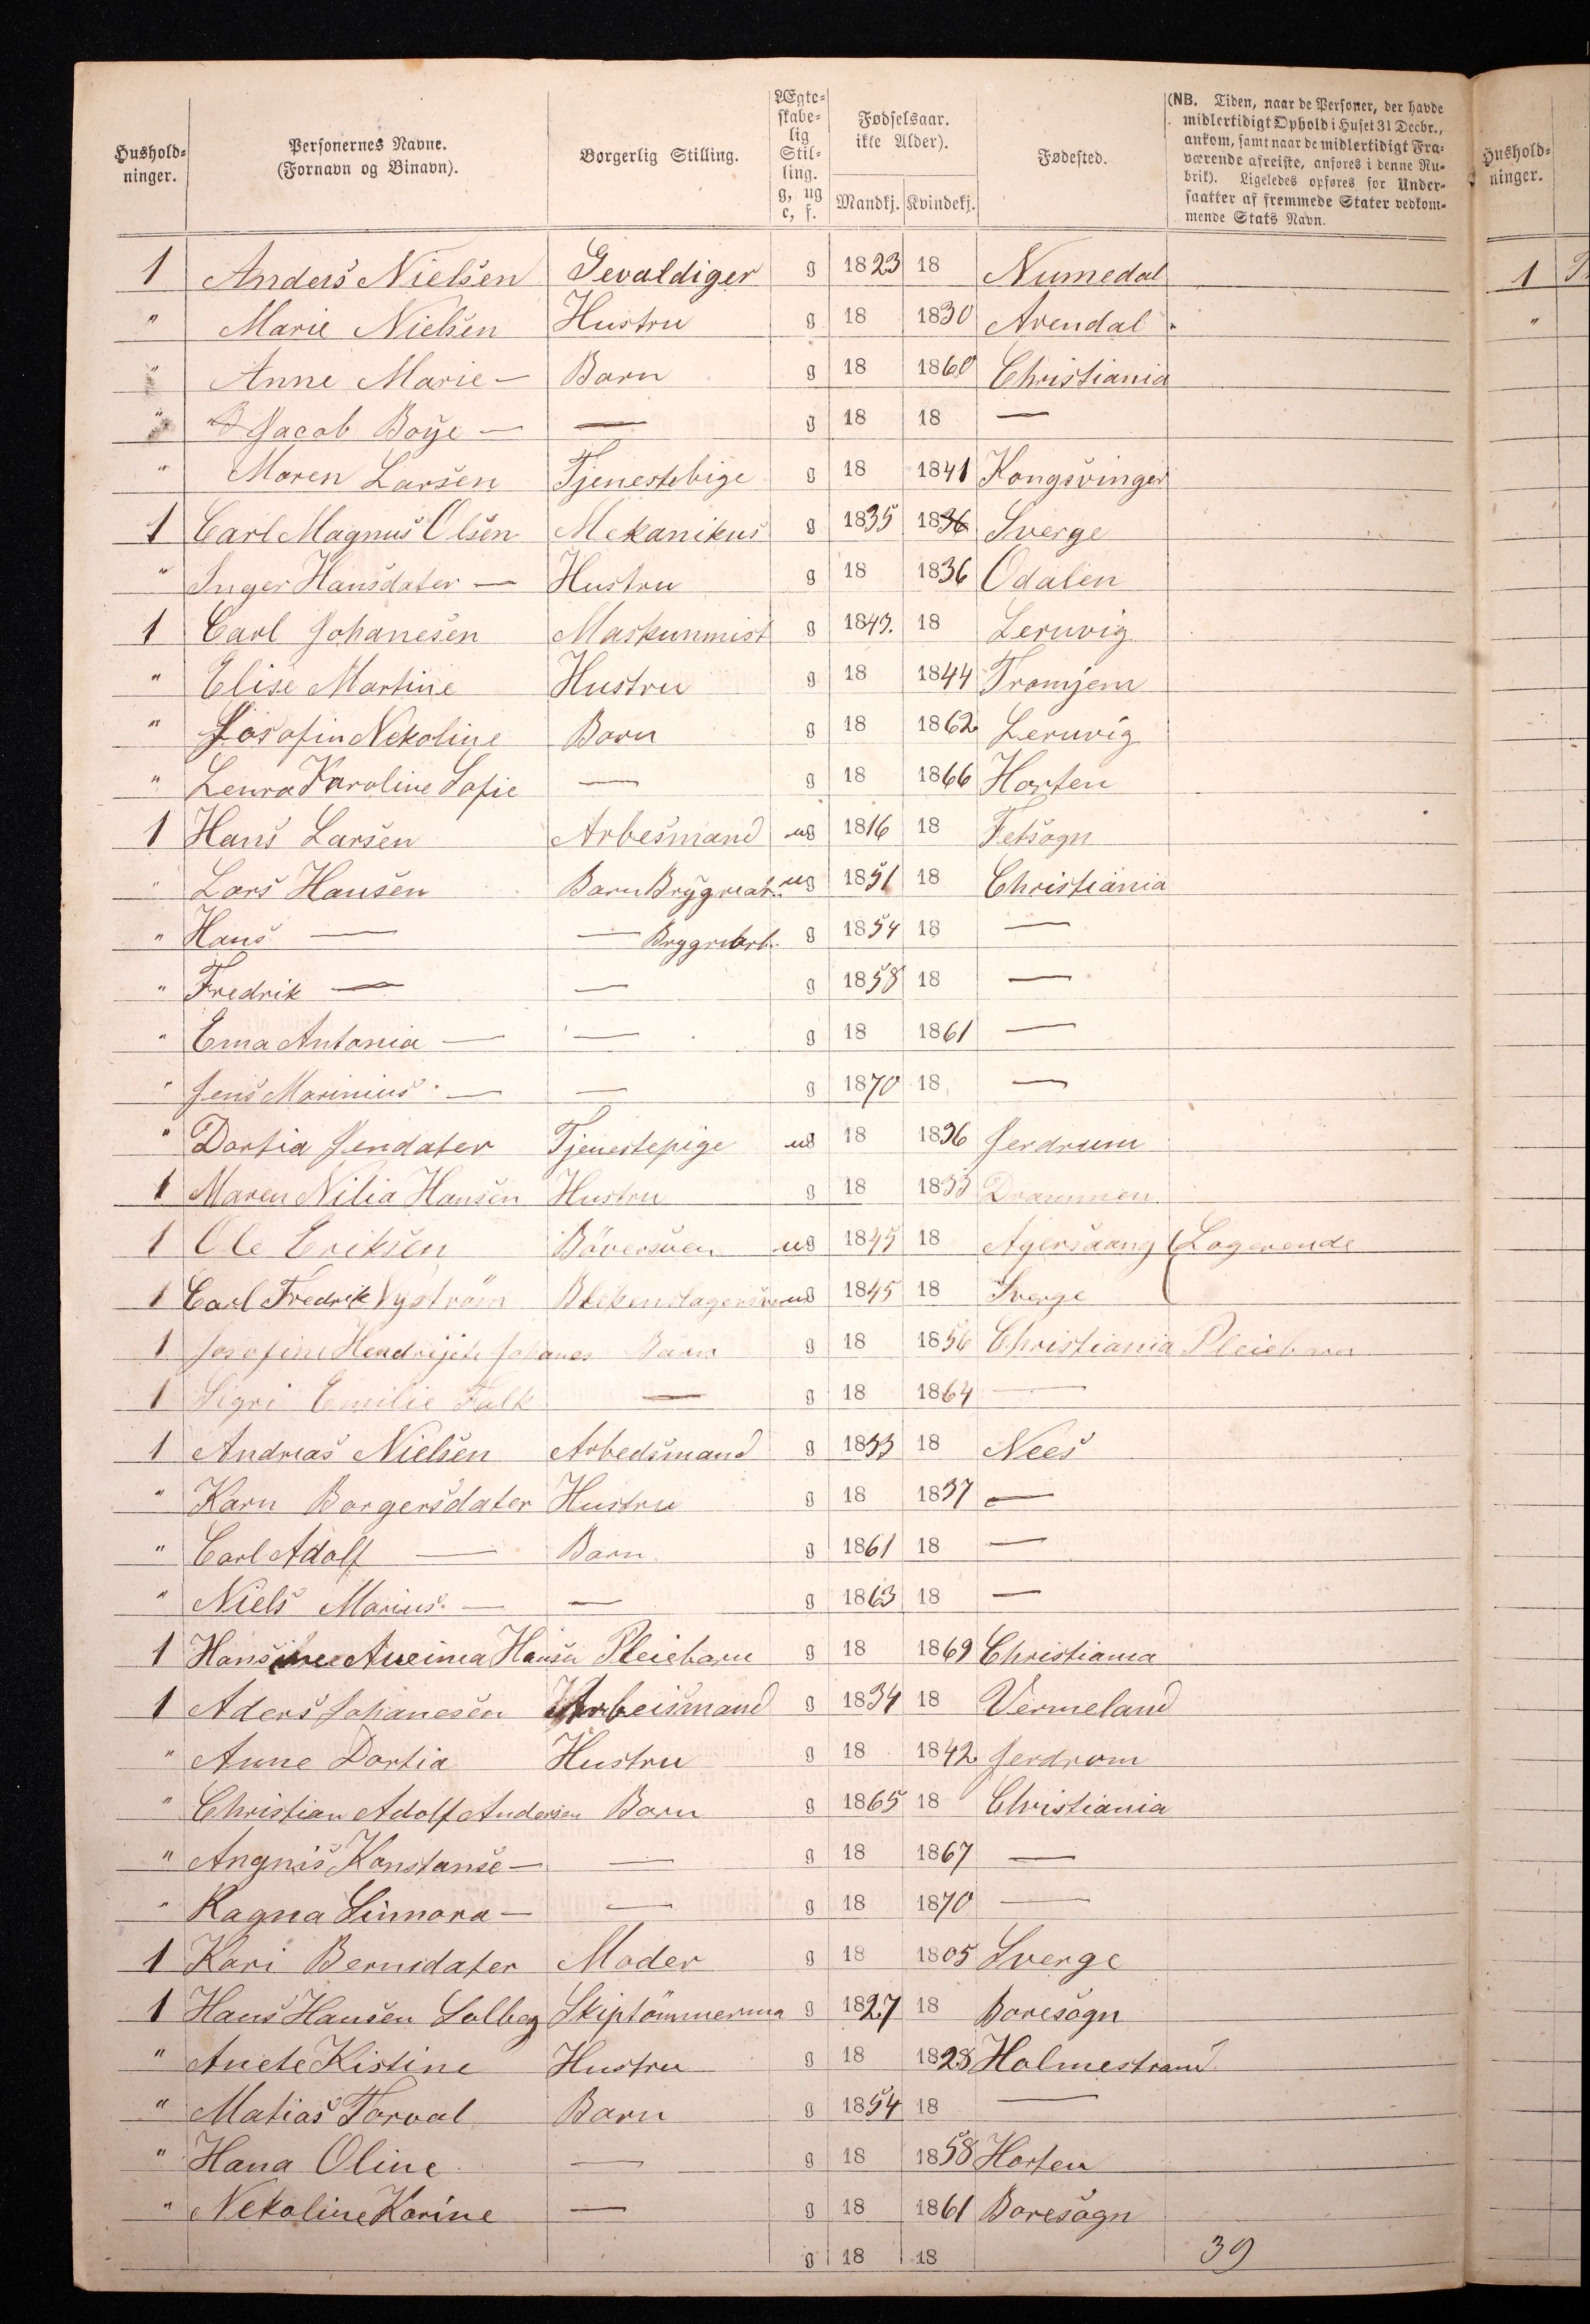 Hushold-
ninger.
Personernes Navne.
(Fornavn og Binavn).
Borgerlig Stilling.
Ægte-
skabe-
lig
Stil-
ling.
g, ug
e, f.
Fødselsaar.
ikke Alder).
Mandkj. Kvindekj.
Fødested.
(NB. Tiden, naar de Personer, der havde
midlertidigt Ophold i Huset 31 Decbr.,
ankom, samt naar de midlertidigt Fra-
værende afreiste, anføres i denne Ru-
brik). Ligeledes opføres for Under-
saatter af fremmede Stater vedkom-
mende Stats Navn.
Hushold-
ninger.
1 Anders Nielsen Gevaldiger g 1823 18 Numedal 1
" Marie Nielsen Hustru g 18 1830 Arendal "
" Anne Marie — Barn g 18 1860 Christiania
" Jacob Boye — — g 18 18 —
" Maren Larsen Tjenestebige g 18 1841 Kongsvinger
1 Carl Magnus Olsen Mekanikus g 1835 1836 Sverge
" Inger Hansdater — Hustru g 18 1836 Odalen
1 Carl Johanesen Maskunmist g 1843. 18 Leruvig
" Elise Martine Hustru g 18 1844 Tromjem
" Josofin Nekoline Barn g 18 1862 Leruvig
" Lenra Karoline Sofie — g 18 1866 Horten
1 Hans Larsen Arbesmand ug 1816 18 Fetsogn
" Lars Hansen Barn ug 1851 18 Christiania
" Hans — — g 1854 18 —
" Fredrik — — g 1858 18 —
" Ema Antonia — — g 18 1861 —
" Jens Marinius — — g 1870 18 —
" Dortia Jendater Tjenestepige ug 18 1836 Jerdrum
1 Maren Nilia Hansen Hustru g 18 1833 Drammen
1 Ole Eriksen Bøversven ug 1845 18 Agersaang (Logerende
1 Carl Fredrik Nyström ug 1845 18 Sverge
1 Josofine Hendrijete Johanes Barn g 18 1856 Christiania Pleiebarn
1 Sigri Emilie Falk — g 18 1864 —
1 Andreas Nielsen Arbedsmand g 1833 18 Nees
" Karn Borgersdater Hustru g 18 1837 —
" Carl Adolf — Barn g 1861 18 —
" Niels Marius — — g 1863 18 —
1 Hansine Hansen Pleiebarn g 18 1869 Christiania
1 Aders Johanesen Arbeismand g 1834 18 Vermeland
" Anne Dortia Hustru g 18 1842 Jerdrom
" Christian Adolf Andersen Barn g 1865 18 Christiania
" Angnis Konstanse — — g 18 1867 —
" Ragna Linnora — — g 18 1870 —
1 Kari Bernsdater Moder g 18 1805 Sverge
1 Hans Hansen Solberg Skiptömmerma g 1827 18 Boresogn
" Anete Kistine Hustru g 18 1828 Holmestrand
" Matias Torval Barn g 1854 18 —
" Hana Oline — g 18 1858 Horten
" Nekoline Karine — g 18 1861 Boresogn
g 18 18 39